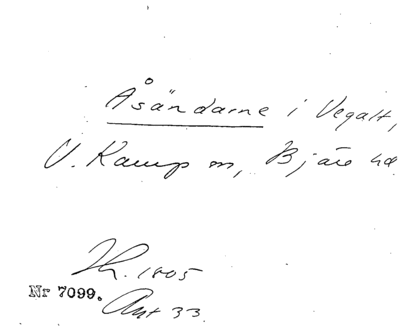 Åsändarne i Vegalt,
V. Karup sn, Bjäre hd
Lh. 1805
Nr 7099.
Akt 33